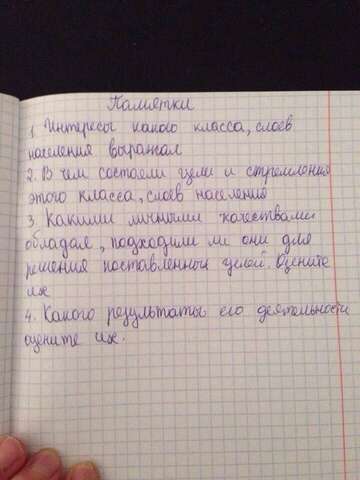 Памятки
1. Интересы какого класса, слоев
населения выражал
2. В чем состояли цели и стремления
этого класса, слоев населения
3. Какими личными качествами
обладал, подходили ли они для
решения поставленных целей. Оцените
их
4. Какого результаты его деятельности
оцените их.